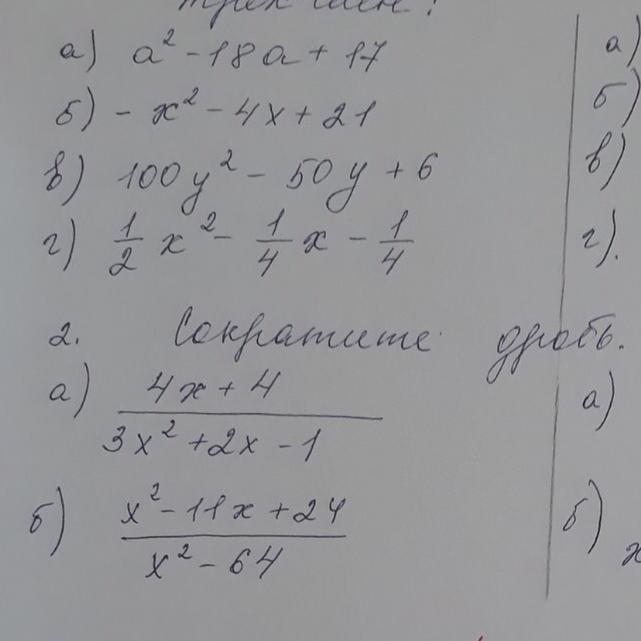 трехчлен:
а) a² - 18a + 17
б) - x² - 4x + 21
в) 100y² - 50y + 6
г) 1/2 x² - 1/4 x - 1/4
2. Сократите дробь.
а) (4x + 4)/(3x² + 2x - 1)
б) (x² - 11x + 24)/(x² - 64)
а)
б)
в)
г).
а)
б)
x